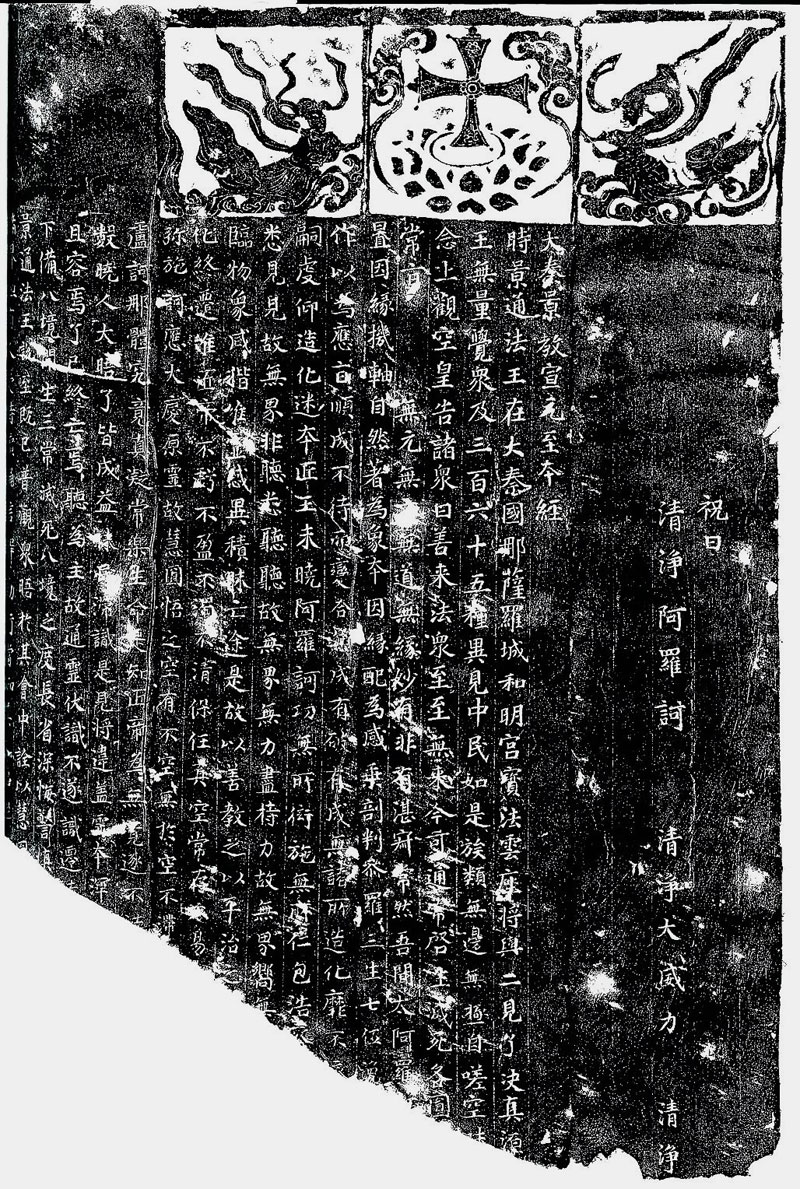 祝曰
清淨阿羅訶 清淨大威力 清淨
大秦景教宣元至本經
時景通法王在大秦國那薩羅城和明宮寶法雲座將與二見了決真源
王無量覺眾及三百六十五種異見中民如是族類無邊無極自嗟空
念上觀空皇告諸眾曰善來法眾至至無來今可通常啓生滅死各圓
常旨 無元無無道無緣妙有非有湛寂常然吾聞太阿羅
置因緣機軸自然著為象本因緣配為感乘剖判參羅三生七位
作以為應旨順成不待而變合無成有破有成無諸所造化靡不
嗣虔仰造化迷本匠王未曉阿羅訶功無所衒施無所仁包浩
悉見見故無界非聽悉聽聽故無界無力盡持力故無界嚮無
臨物象咸揩唯靈感異積昧亡途是故以善教之以平治
化終遷唯匠帝不虧不盈不濁不清保任真空常存易
彌施訶應大慶原靈故慧圓悟之空有不空無於空不
盧訶那體究竟真凝常樂生命是知匠帝為無竟逐不
數曉人大晤了皆成益滯識是見將違蓋靈本渾
且容焉了已終亡焉聽為主故通靈伏識不遂識遷
下備八境開生三常滅死八境之度長省深悔警
景通法王至既已普觀眾晤於其會中詮以慧